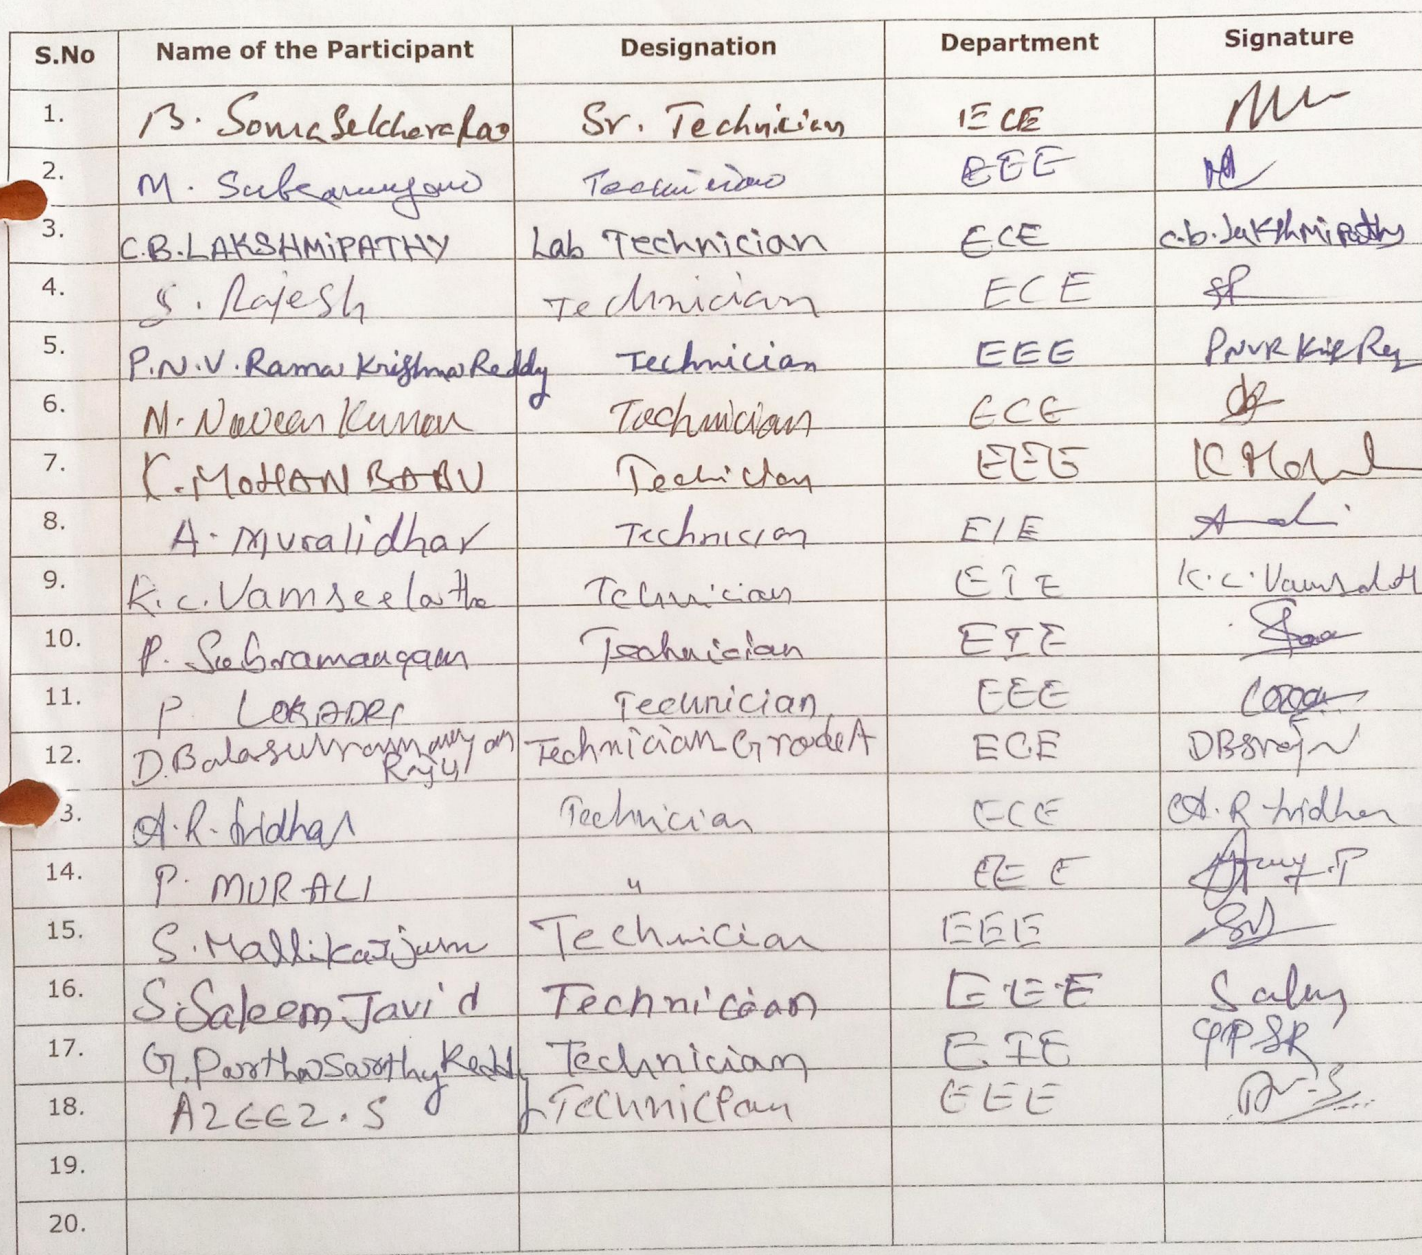 S.No Name of the Participant Designation Department Signature
1. B. SomaSekhara Rao Sr. Technician ECE
2. M. Technician EEE
3. C.B.LAKSHMiPATHY Lab Technician ECE c.b.lakshmipathy
4. S. Rajesh Technician ECE
5. P.N.V. Rama Krishna Reddy Technician EEE
6. M. Naveen Kumar Technician ECE
7. K. MOHAN BABU Techician EEE
8. A. Muralidhar Technician EIE
9. K.C. Vamseelatha Technician EIE K.C.
10. P. Technician EIE
11. P LOKADRI Technician EEE
12. D.Balasubramanyam Technician Grade A ECE
Raju
3. A.R. Technician ECE A.R.
14. P. MURALI " EEE
15. S. Mallikarjuna Technician EEE
16. S. Saleem Javid Technician EEE
17. G. ParthaSarthy Reddy Technician EIE GPSR
18. AZEEZ.S Technician EEE
19.
20.